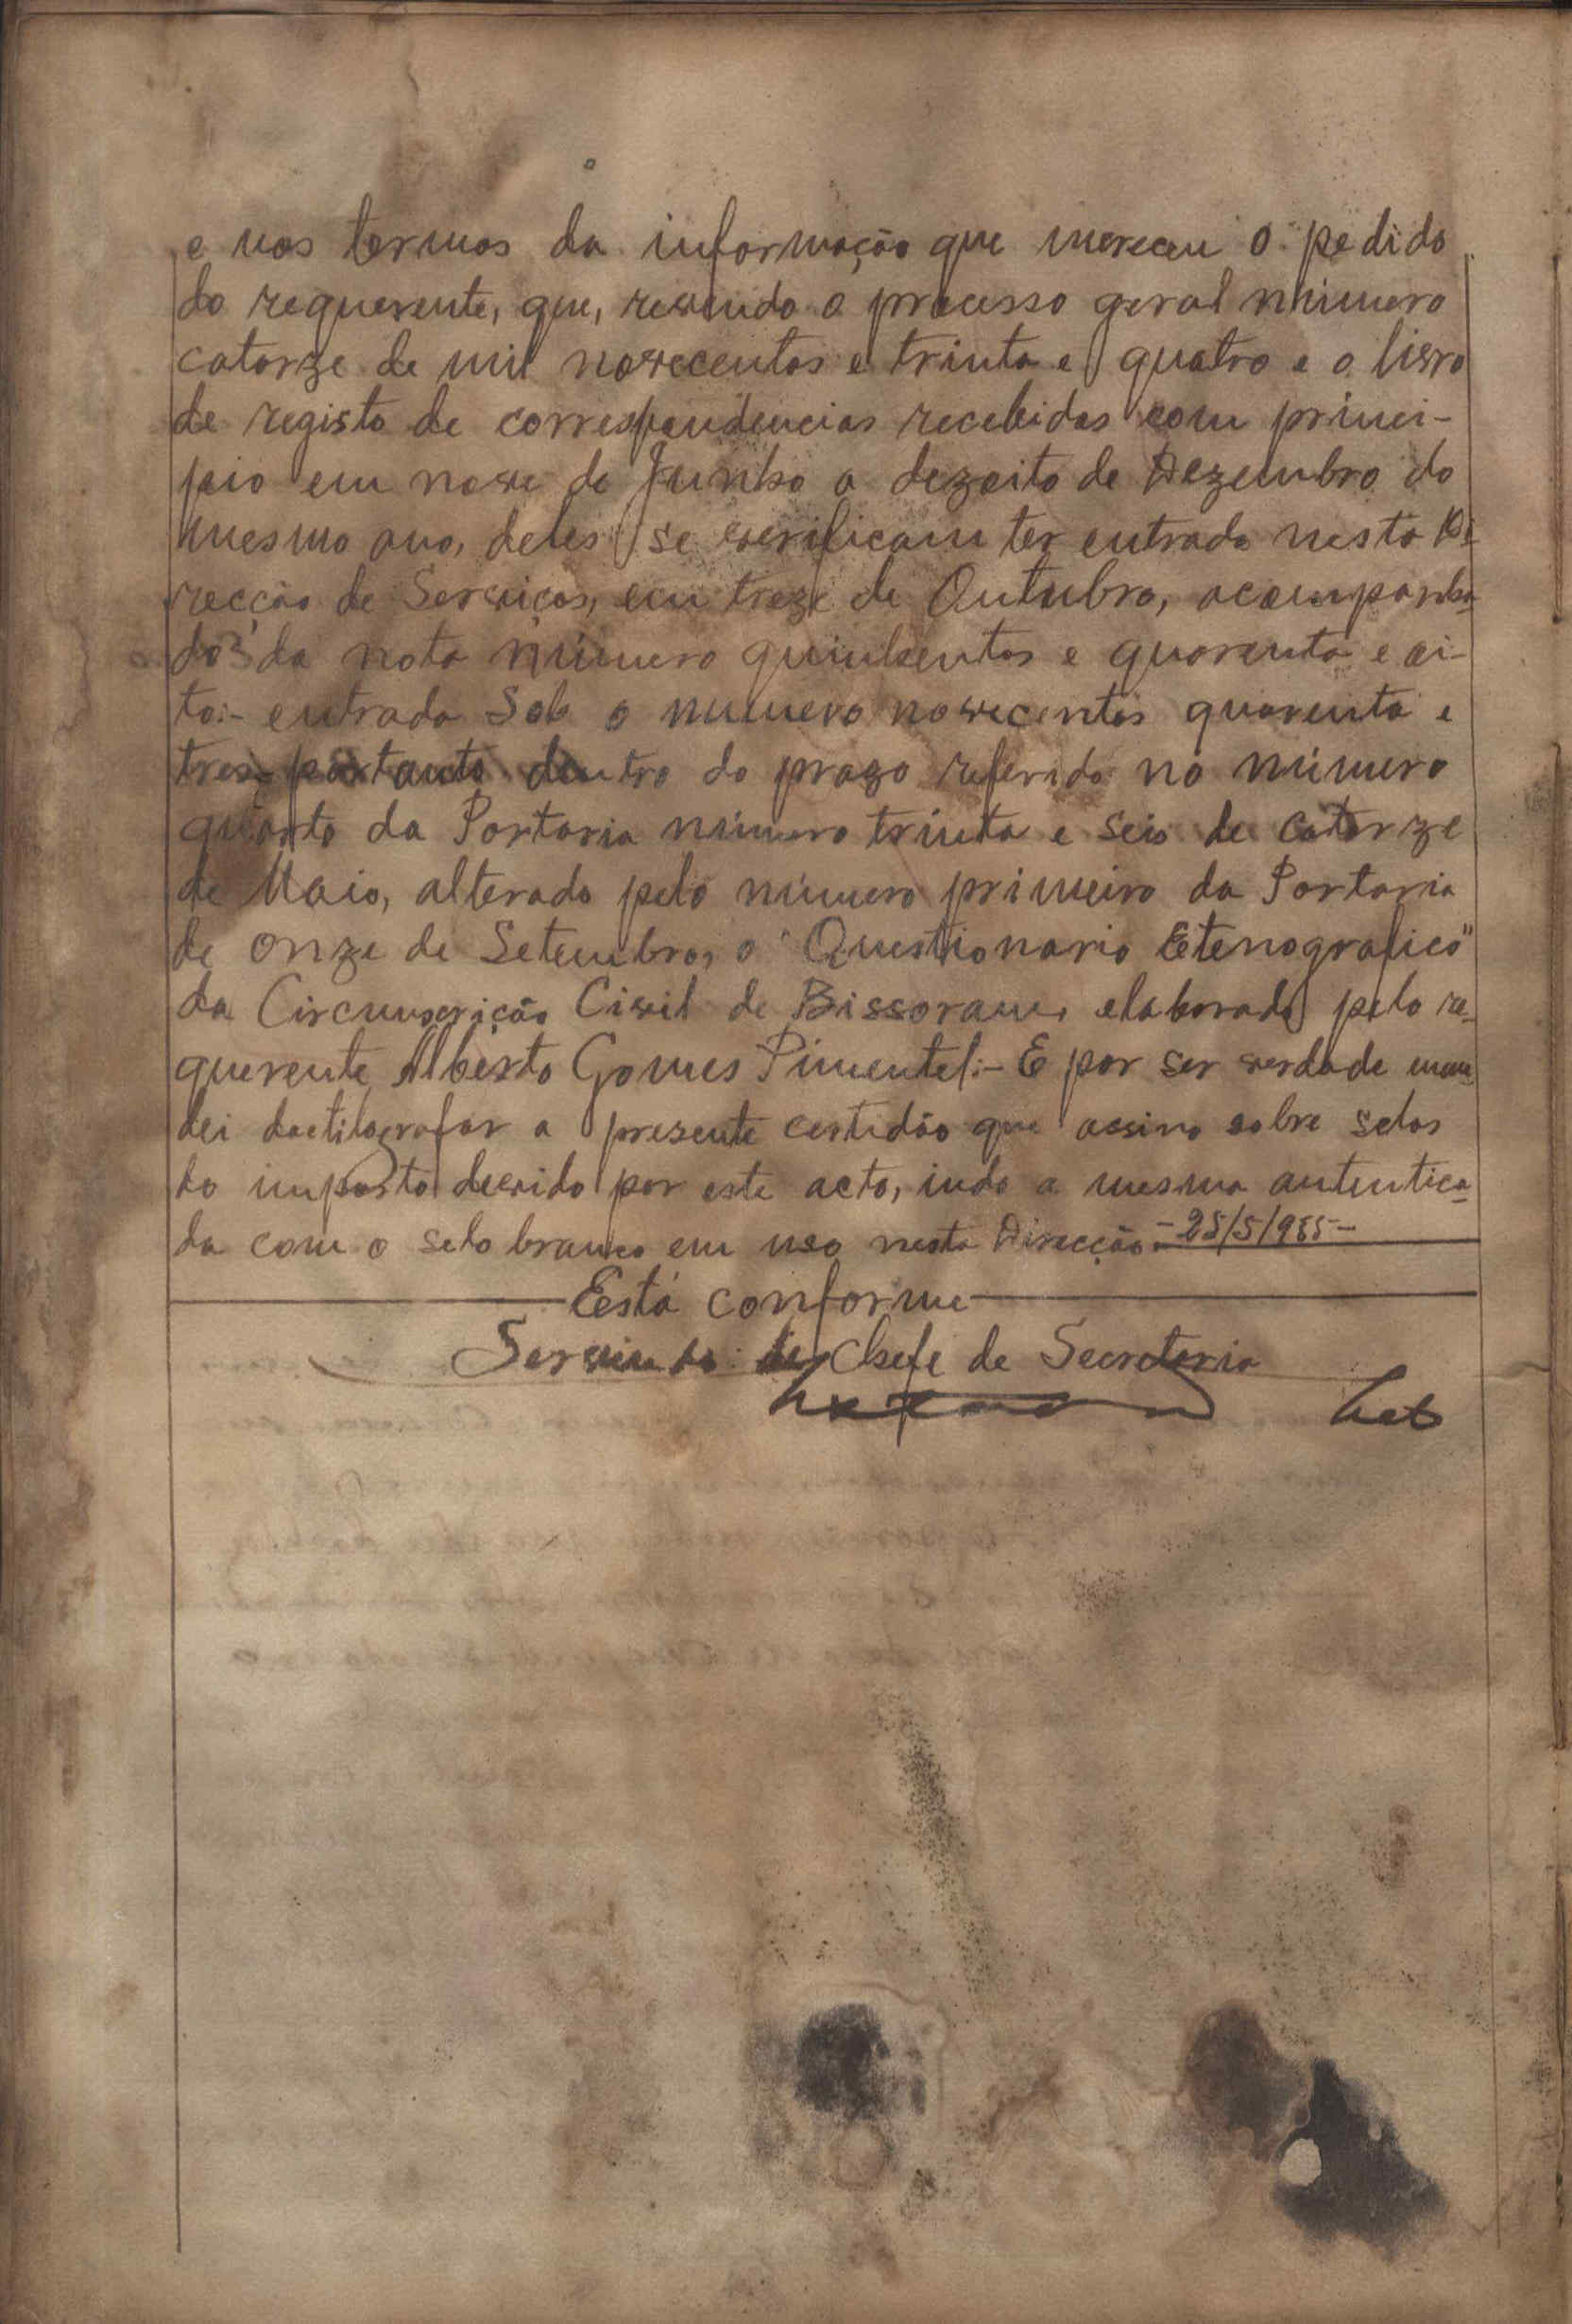 e nos termos da informação que mereceu o pedido
do requerente, que, revendo o processo geral número
catorze de mil novecentos e trinta e quatro e o livro
de registo de correspondencias recebidas com princi-
pio em nove de Junho a dezoito de Dezembro do
mesmo ano, deles se verificam ter entrado nesta Di
recção de Serviços, em treze de Outubro, acompanha
do da nota número quinhentos e quarenta e oi-
to:- entrada sob o numero novecentos quarenta e
tres- portanto dentro do prazo referido no número
quarto da Portaria número trinta e seis de catorze
de Maio, alterado pelo número primeiro da Portaria
de onze de Setembro, o "Questionario Etenografico"
da Circunscrição Civil de Bissoram, elaborado pelo re-
querente Alberto Gomes Pimentel:- E por ser verdade man
dei dactilografar a presente certidão que assino sobre selos
do imposto devido por este acto, indo a mesma autentica
da com o selo branco em uso nesta Direcção.-
Está conforme
Servindo de Chefe de Secretaria